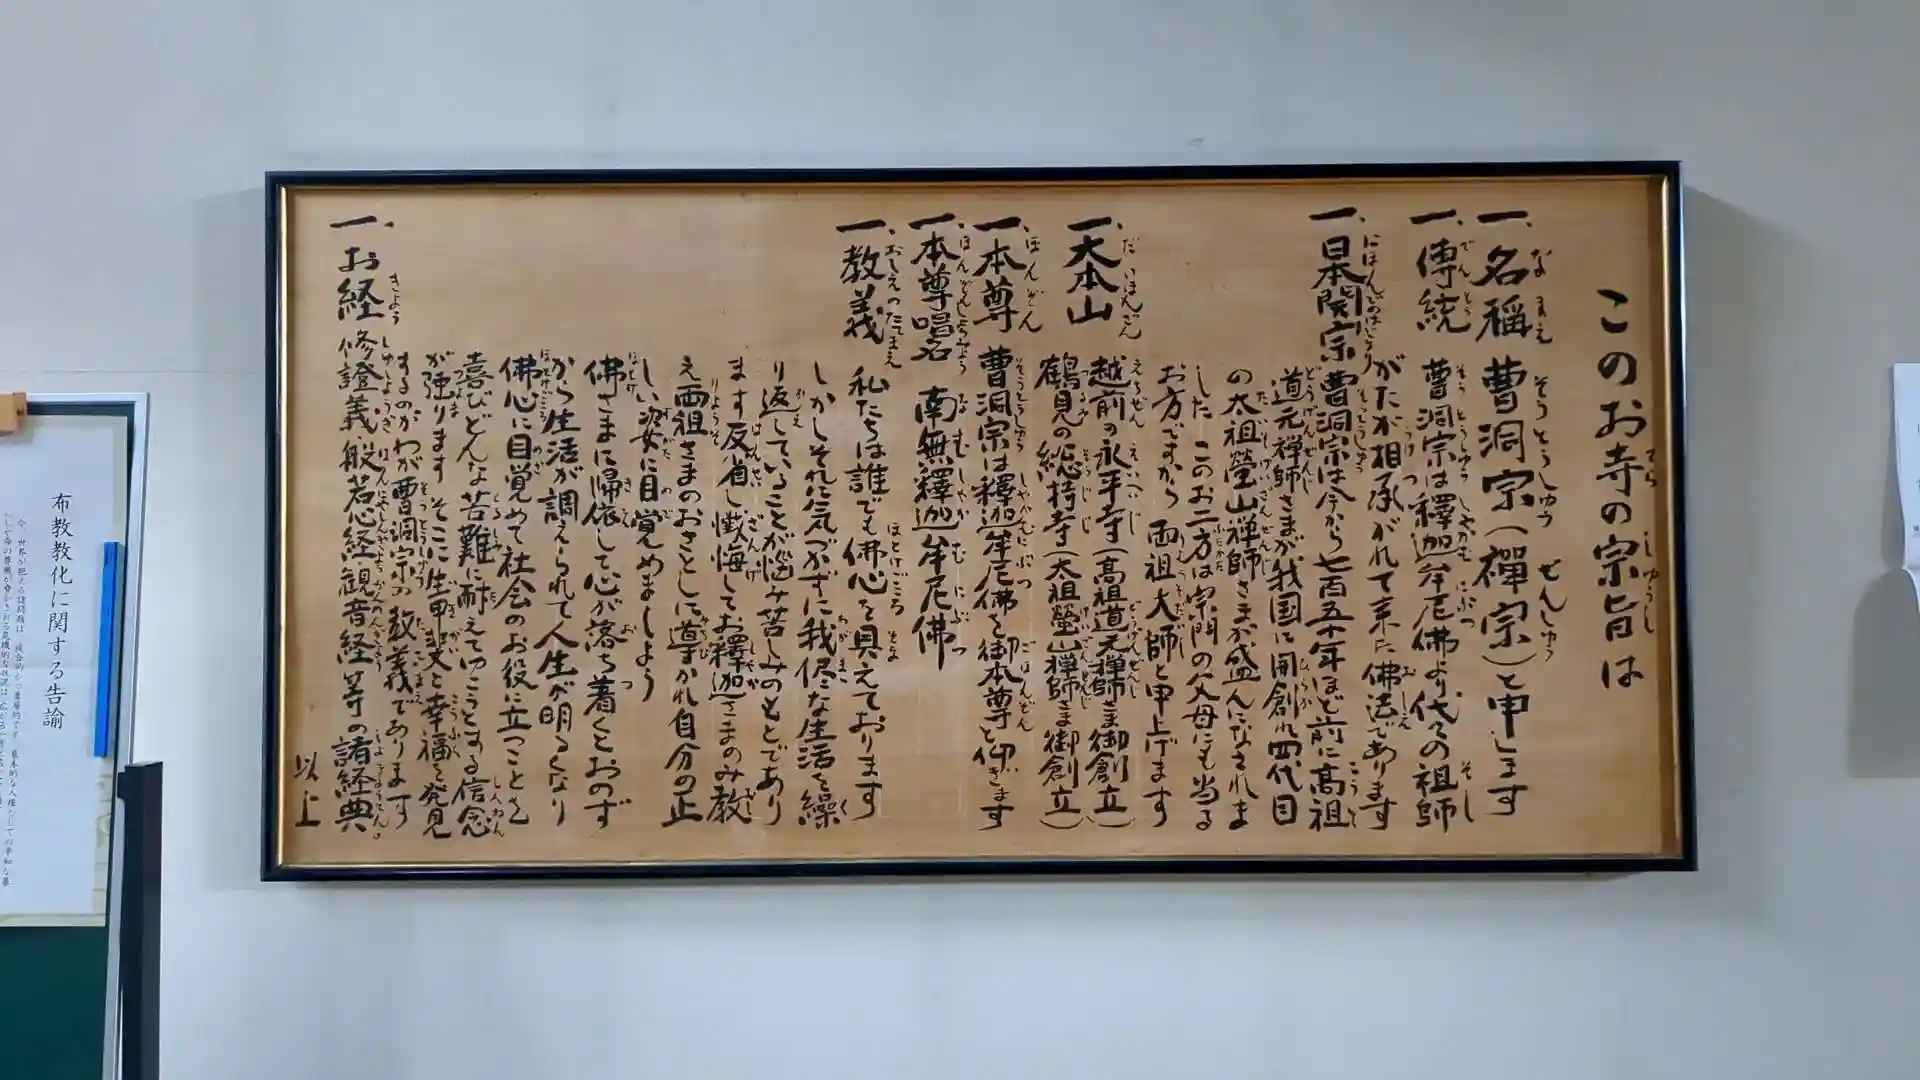 このお寺の宗旨は
一、名稱 曹洞宗(禪宗)と申します
一、傳統 曹洞宗は釋迦牟尼佛より代々の祖師
がたが相承がれて来た佛法であります
一、日本開宗 曹洞宗は今から七百五十年ほど前に高祖
道元禅師さまが我国に開創れ四代目
の太祖瑩山禅師さまが盛んになされま
した このお二方は宗門の父母にも当る
お方ですから 両祖大師と申上げます
一、大本山 越前の永平寺(高祖道元禅師さま御創立)
鶴見の総持寺(太祖瑩山禅師さま御創立)
一、本尊 曹洞宗は釋迦牟尼佛を御本尊と仰ぎます
一、本尊唱名 南無釋迦牟尼佛
一、教義 私たちは誰でも佛心を具えております
しかしそれに気づかずに我侭な生活を繰
り返していることが悩み苦しみのもとであり
ます反省し懺悔してお釋迦さまのみ教
え両祖さまのおさとしに導かれ自分の正
しい姿に目覚めましょう
佛さまに帰依して心が落ち着くとおのず
から生活が調えられて人生が明るくなり
佛心に目覚めて社会のお役に立つことを
喜びどんな苦難に耐えてゆこうとする信念
が強ります そこに生甲斐と幸福を発見
するのがわが曹洞宗の教義であります
一、お経 修證義、般若心経、観音経等の諸経典。
以上
布教教化に関する告諭